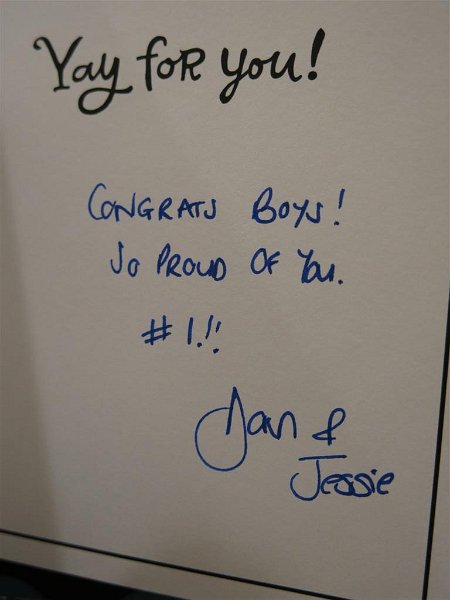 Yay for you!
CONGRATS BOYS!
SO PROUD OF YOU.
#1.!!
Jan &
Jessie